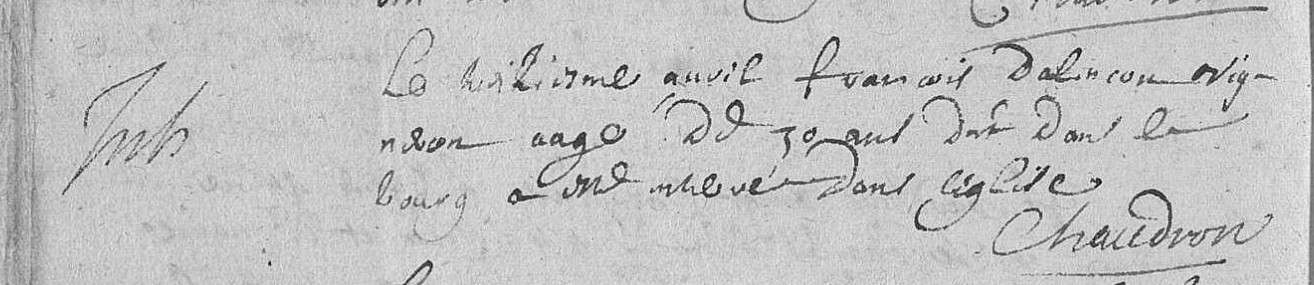 Le huitiesme auvil francois dalencon vig-
neron aagé De 50 ans Dnt Dans le
bourg a esté inhevé Dans léglise
Inh
Chaudron